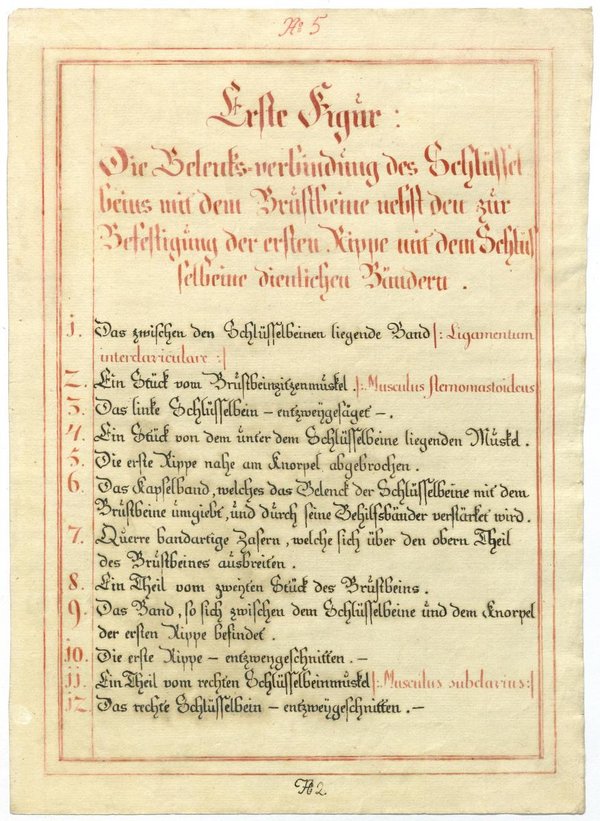 № 5
Erste Figur :
Die Gelenks-verbindung des Schlüssel
beins mit dem Brustbeine nebst den zur
Befestigung der ersten Rippe mit dem Schlüs
selbeine dienlichen Bändern .
1. Das zwischen den Schlüsselbeinen liegende Band /: Ligamentum
interclaviculare :/
2. Ein Stück vom Brustbeinzitzenmuskel . /: Musculus sternomastoideus
3. Das linke Schlüsselbein – entzweygesäget – .
4. Ein Stück von dem unter dem Schlüsselbeine liegenden Muskel .
5. Die erste Rippe nahe am Knorpel abgebrochen .
6. Das Kapselband , welches das Gelenck der Schlüsselbeine mit dem
Brustbeine umgiebt , und durch seine Behilfsbänder verstärket wird .
7. Querre bandartige Zasern , welche sich über den obern Theil
des Brustbeines ausbreiten .
8. Ein Theil vom zweyten Stück des Brustbeins .
9. Das Band , so sich zwischen dem Schlüsselbeine und dem Knorpel
der ersten Rippe befindet .
10. Die erste Rippe – entzweygeschnitten . –
11. Ein Theil vom rechten Schlüsselbeinmuskel /: Musculus subclavius :/
12 Das rechte Schlüsselbein – entzweygeschnitten . –
№ 2